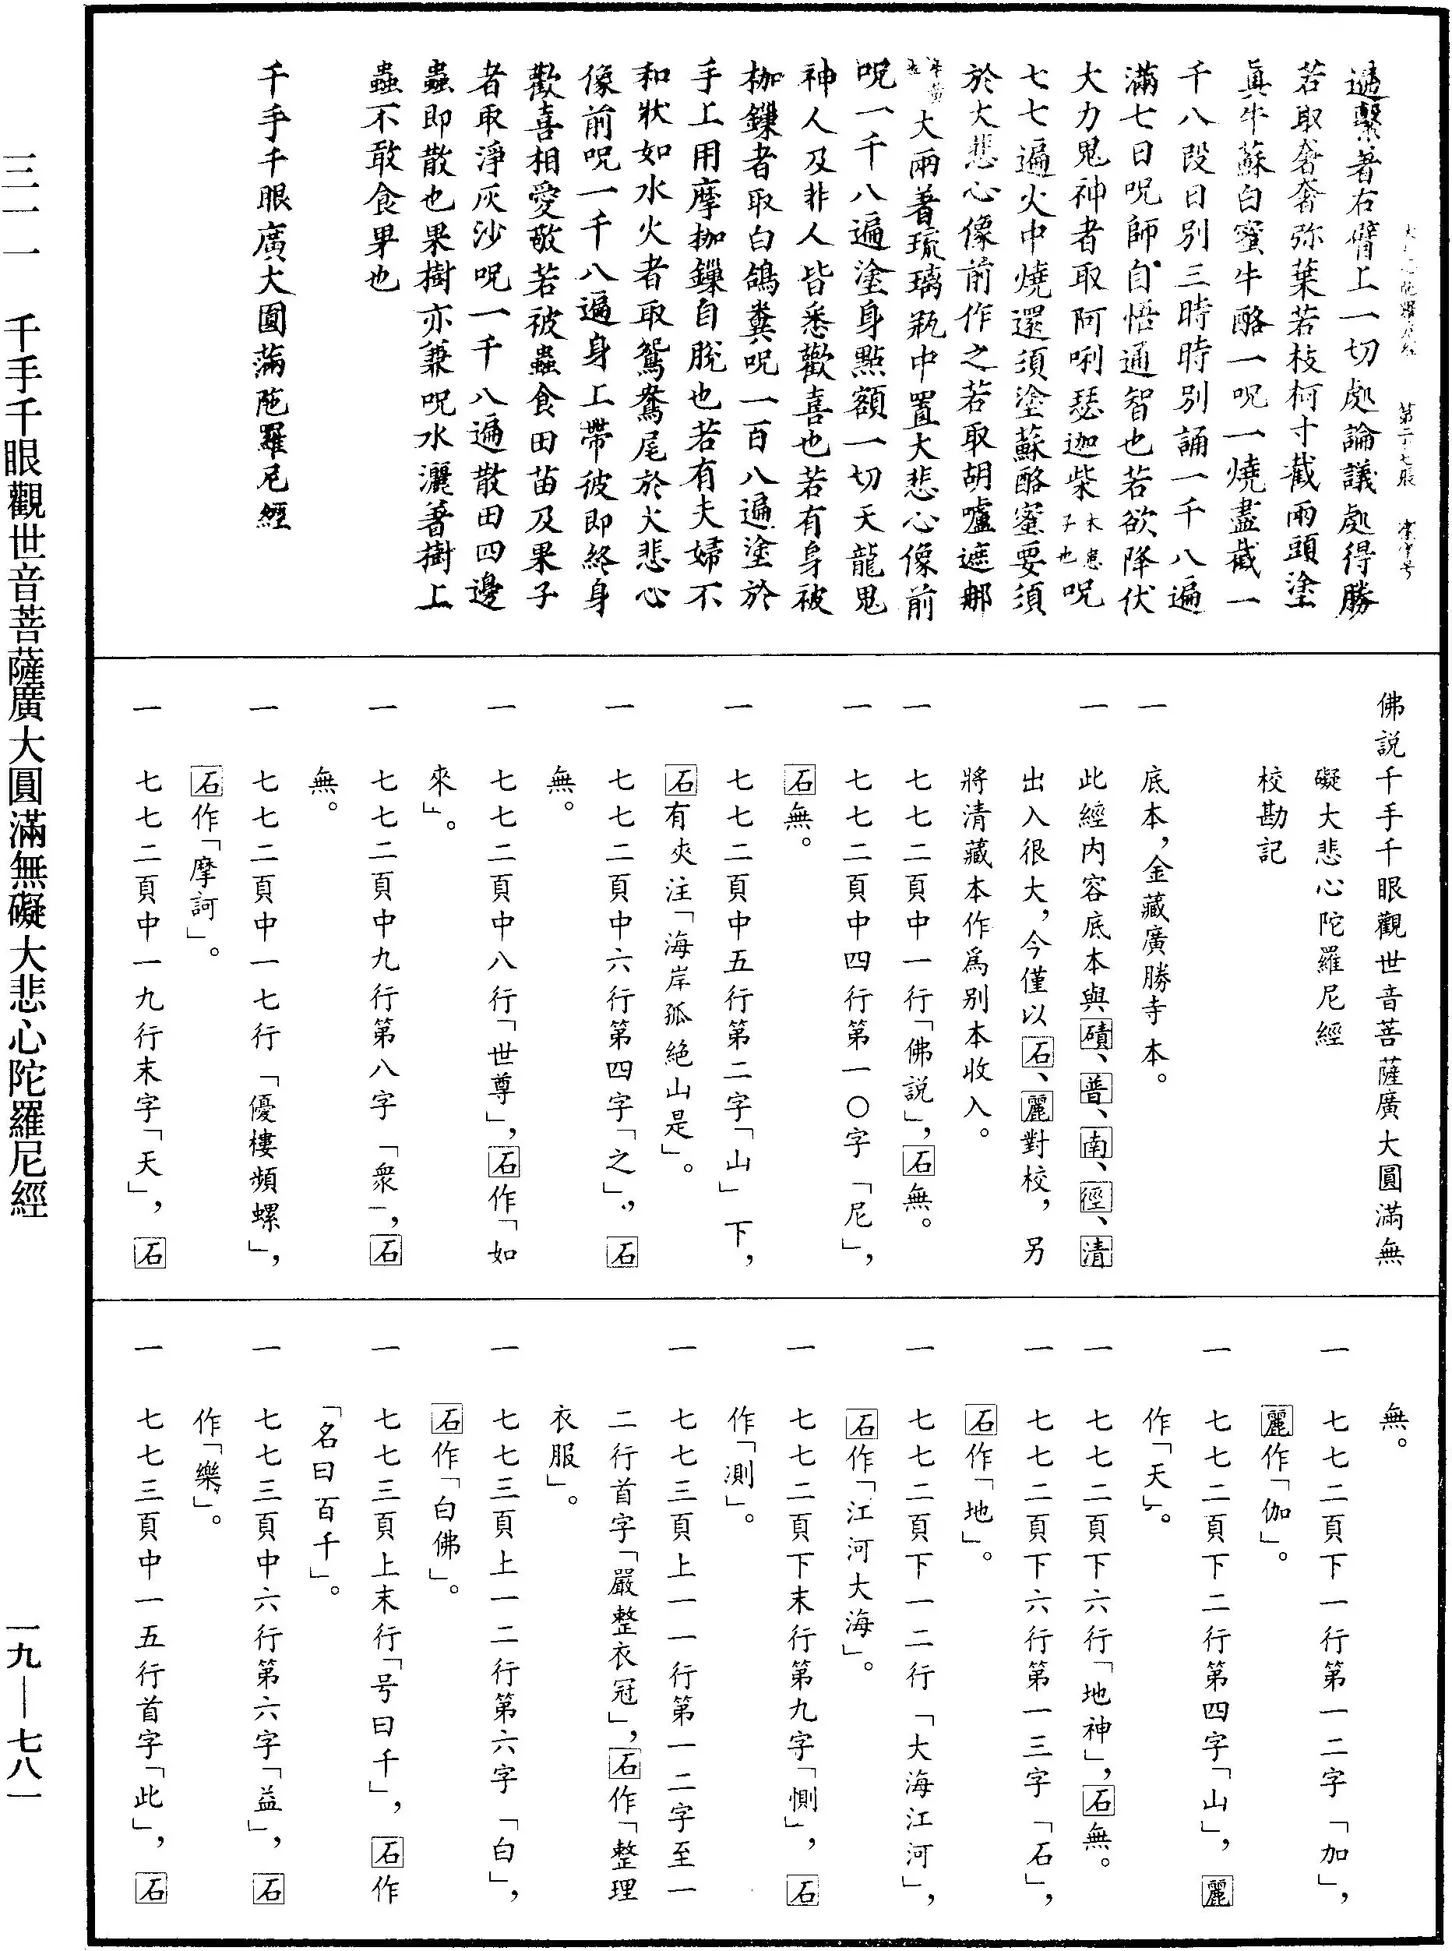 遞繫著右臂上一切處論議處得勝
若取奢奢弥葉若枝柯寸截兩頭塗
真牛蘇白蜜牛酪一呪一燒盡截一
千八段日別三時時別誦一千八遍
滿七日呪師自悟通智也若欲降伏
大力鬼神者取阿唎瑟迦柴木患子也呪
七七遍火中燒還須塗蘇酪蜜要須
於大悲心像前作之若取胡嚧遮那
牛黃是大兩著琉璃瓶中置大悲心像前
呪一千八遍塗身點額一切天龍鬼
神人及非人皆悉歡喜也若有身被
枷鏁者取白鴿糞呪一百八遍塗於
手上用摩枷鏁自脫也若有夫婦不
和狀如水火者取鴛鴦尾於大悲心
像前呪一千八遍身上帶彼即終身
歡喜相愛敬若被蟲食田苗及果子
者取淨灰沙呪一千八遍散田四邊
蟲即散也果樹亦兼呪水灑著樹上
蟲不敢食果也
千手千眼廣大圓滿陁羅尼經
佛説千手千眼觀世音菩薩廣大圓滿無
礙大悲心陀羅尼經
校勘記
一 底本，金藏廣勝寺本。
一 此經内容底本與磧、普、南、徑、清
出入很大，今僅以石、麗對校，另
將清藏本作爲別本收入。
一 七七二頁中一行「佛説」，石無。
一 七七二頁中四行第一〇字「尼」，
石無。
一 七七二頁中五行第二字「山」下，
石有夾注「海岸孤絶山是」。
一 七七二頁中六行第四字「之」，石
無。
一 七七二頁中八行「世尊」，石作「如
來」。
一 七七二頁中九行第八字「衆」，石
無。
一 七七二頁中一七行「優樓頻螺」，
石作「摩訶」。
一 七七二頁中一九行末字「天」，石
無。
一 七七二頁下一行第一二字「加」，
麗作「伽」。
一 七七二頁下二行第四字「山」，麗
作「天」。
一 七七二頁下六行「地神」，石無。
一 七七二頁下六行第一三字「石」，
石作「地」。
一 七七二頁下一二行「大海江河」，
石作「江河大海」。
一 七七二頁下末行第九字「惻」，石
作「測」。
一 七七三頁上一一行第一二字至一
二行首字「嚴整衣冠」，石作「整理
衣服」。
一 七七三頁上一二行第六字「白」，
石作「白佛」。
一 七七三頁上末行「号曰千」，石作
「名曰百千」。
一 七七三頁中六行第六字「益」，石
作「樂」。
一 七七三頁中一五行首字「此」，石
三一一 千手千眼觀世音菩薩廣大圓滿無礙大悲心陀羅尼經
一九—七八一